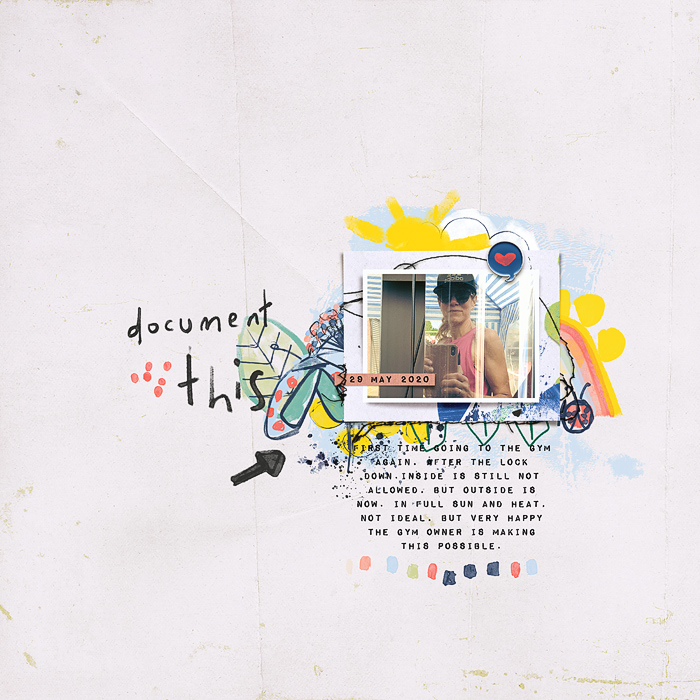 document
this
29 MAY 2020
FIRST TIME GOING TO THE GYM
AGAIN. AFTER THE LOCK
DOWN. INSIDE IS STILL NOT
ALLOWED. BUT OUTSIDE IS
NOW. IN FULL SUN AND HEAT.
NOT IDEAL. BUT VERY HAPPY
THE GYM OWNER IS MAKING
THIS POSSIBLE.